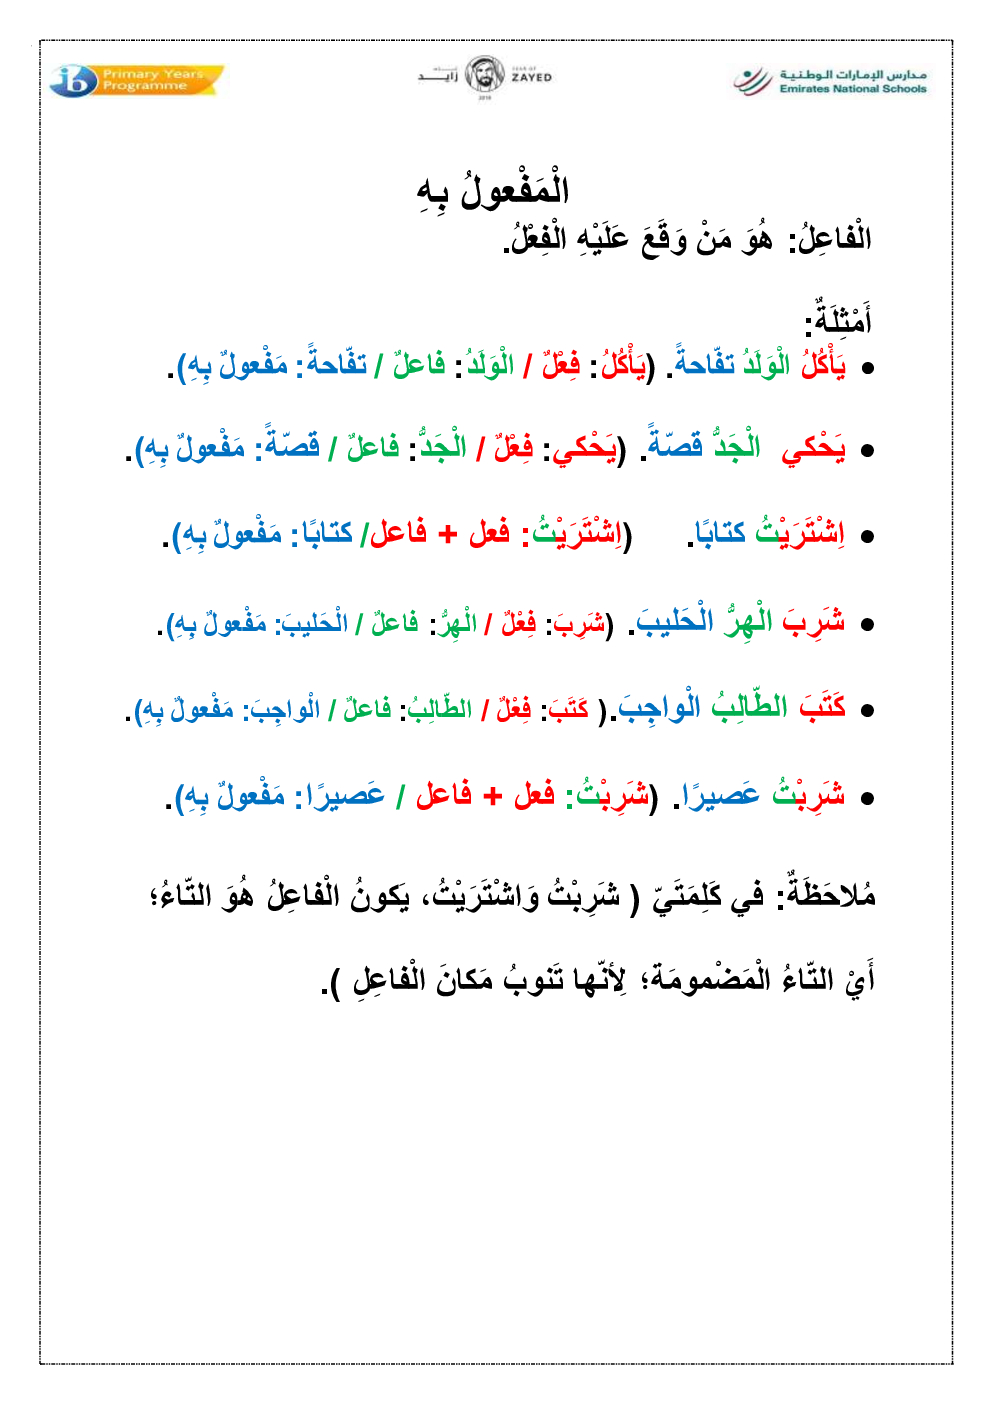 Primary Years
Programme
زايــد
YEAR OF
ZAYED
2018
مدارس الإمارات الوطنية
Emirates National Schools
الْمَفْعولُ بِهِ
الْفاعِلُ: هُوَ مَنْ وَقَعَ عَلَيْهِ الْفِعْلُ.
أَمْثِلَةٌ:
• يَأْكُلُ الْوَلَدُ تفّاحةً. (يَأْكُلُ: فِعْلٌ / الْوَلَدُ: فاعلٌ / تفّاحةً: مَفْعولٌ بِهِ).
• يَحْكي الْجَدُّ قصّةً. (يَحْكي: فِعْلٌ / الْجَدُّ: فاعلٌ / قصّةً: مَفْعولٌ بِهِ).
• اِشْتَرَيْتُ كتابًا. (اِشْتَرَيْتُ: فعل + فاعل/ كتابًا: مَفْعولٌ بِهِ).
• شَرِبَ الْهِرُّ الْحَليبَ. (شَرِبَ: فِعْلٌ / الْهِرُّ: فاعلٌ / الْحَليبَ: مَفْعولٌ بِهِ).
• كَتَبَ الطّالِبُ الْواجِبَ.( كَتَبَ: فِعْلٌ / الطّالِبُ: فاعلٌ / الْواجِبَ: مَفْعولٌ بِهِ).
• شَرِبْتُ عَصيرًا. (شَرِبْتُ: فعل + فاعل / عَصيرًا: مَفْعولٌ بِهِ).
مُلاحَظَةٌ: في كَلِمَتَيّ ( شَرِبْتُ وَاشْتَرَيْتُ، يَكونُ الْفاعِلُ هُوَ التّاءُ؛
أَيْ التّاءُ الْمَضْمومَة؛ لِأنّها تَنوبُ مَكانَ الْفاعِلِ ).